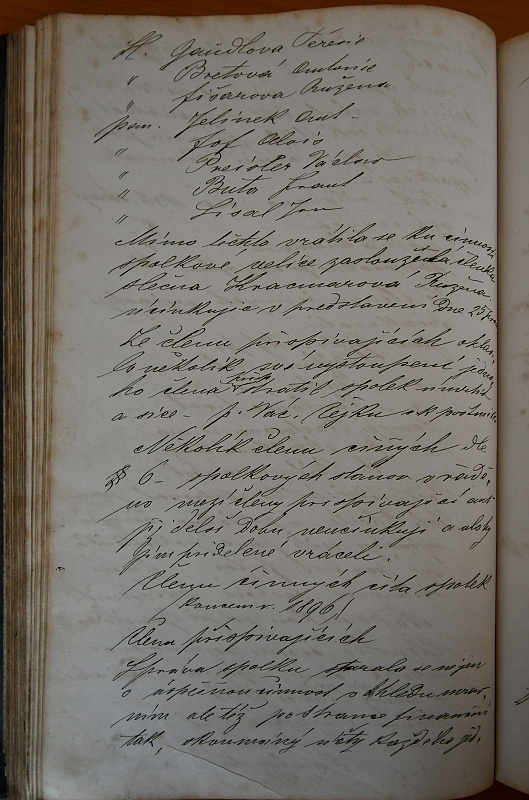 sl. Gaudlova Terezie
" Bretová Antonie
" Fišarova Růžena
pan. Jelínek Ant.
" Alois
" Preisler Václav
" Buta Frant
" Lisal Jan
Mimo těchto vrátila se ku činnosti
spolkové, velice zasloužilá členka
slečna Kracmarová Růžena
účinkujíc v představení dne 25
Ze členu přispívajících ohlá-
lo několik svá vystoupení, jedno-
ho člena ztratil spolek úmrtím
a sice - p. Vác. Čejku
Několik členu činých dle
§ 6 - spolkových stanov vřadě-
no mezi členy přispívající
delší Dobu neučinkují a ulohy
jim přidelene vráceli.
Členu činnych čítá spolek
koncem r. 1896
Členu přispívajících
Správa spolku starala se nejen
o úspěšnou činnost v ohledu morál-
ním ale též po strance finanční
tak, účty každého